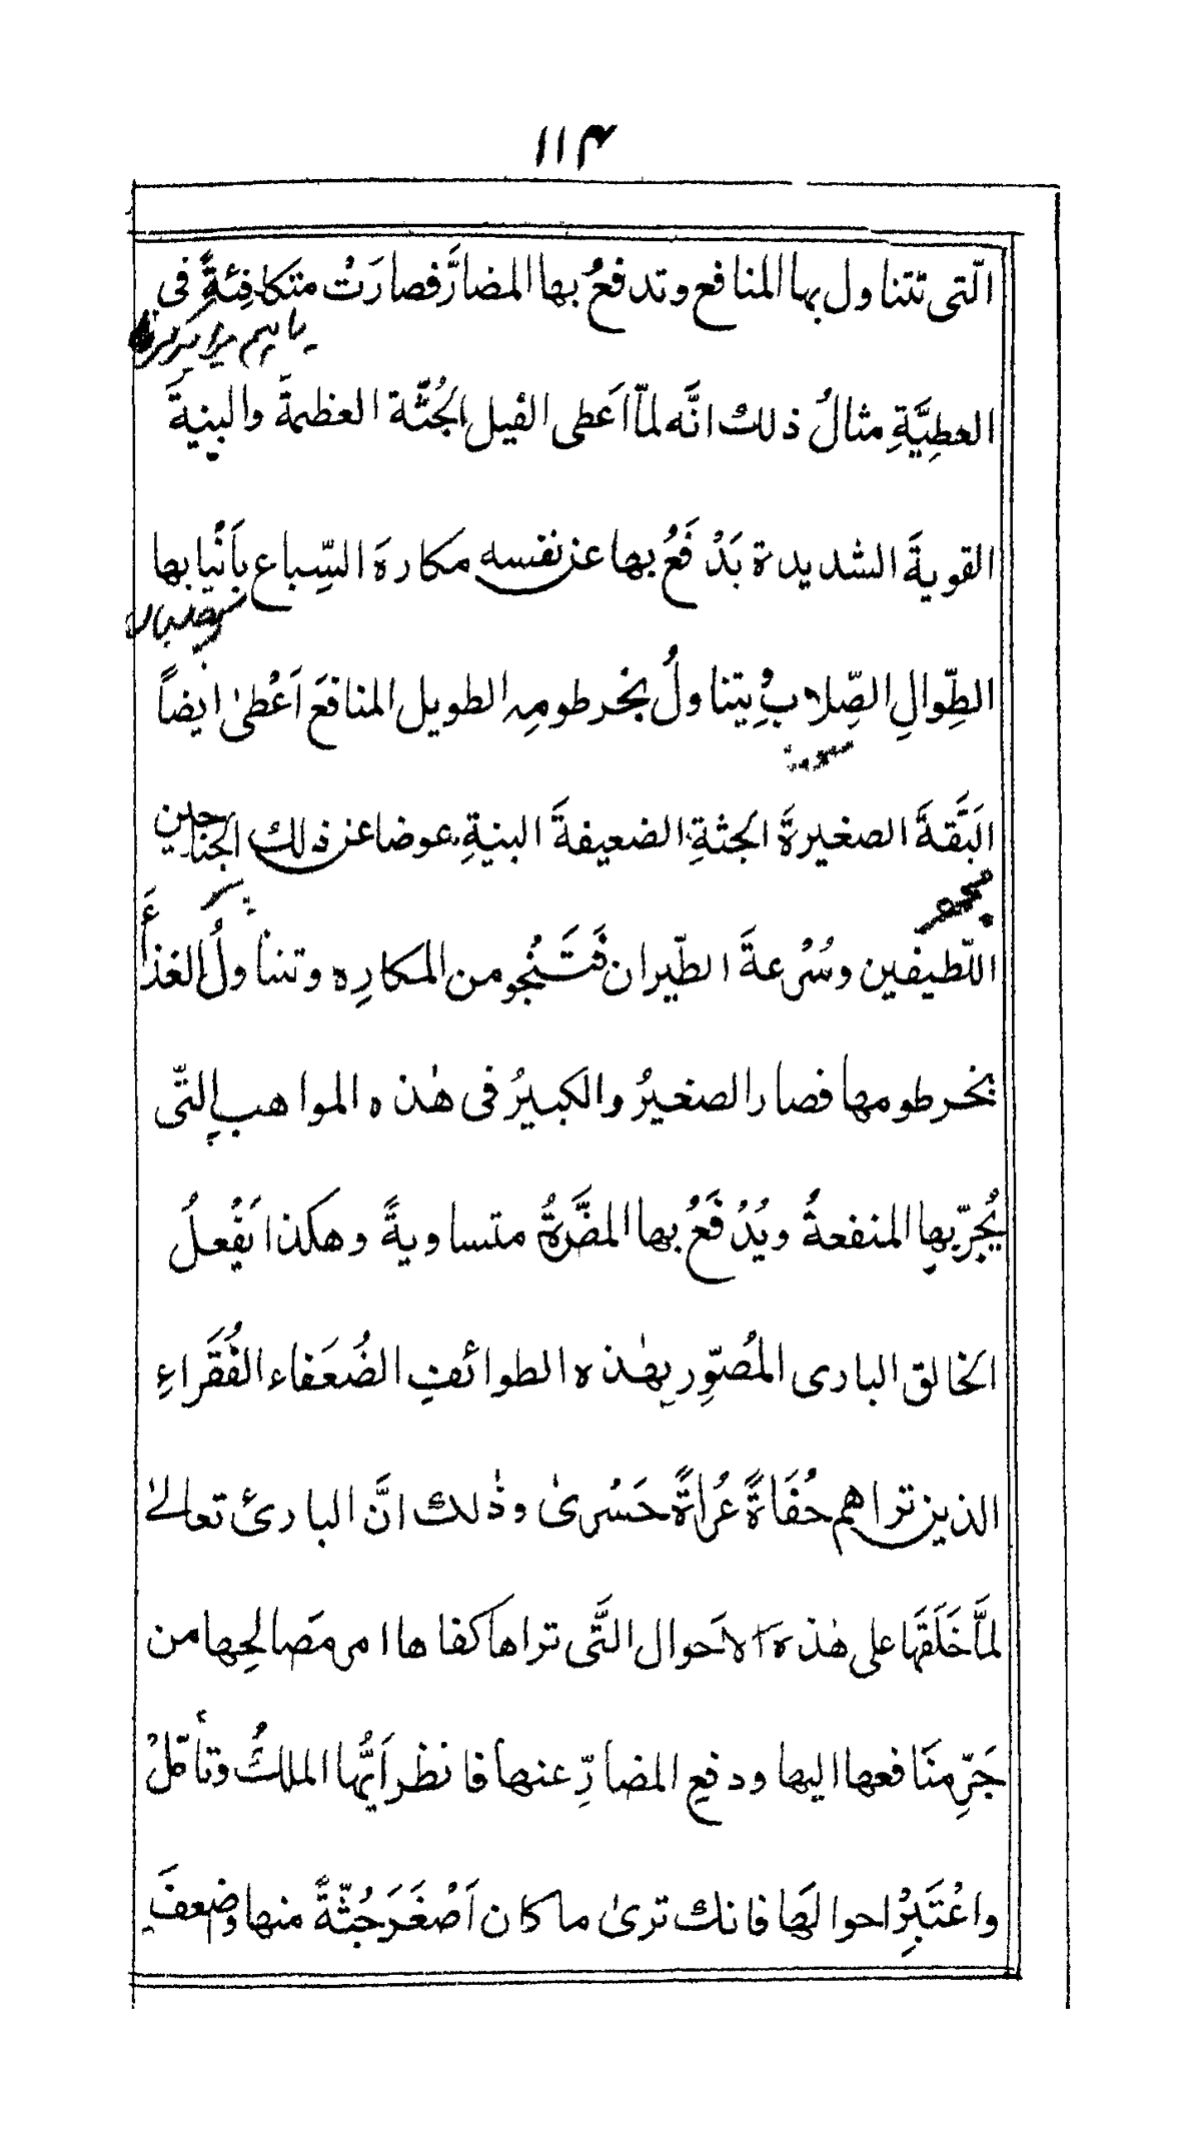 ۱۱۴
الّتى تتناول بها المنافع وتدفعُ بها المضارَّ فصارَتْ متكافِئةً فى
العطِيَّةِ مثالُ ذلك انَّه لمّا اَعطى الفيل الجُثّة العظمةَ والبنِيةَ
القويةَ الشديدة بَدْفَعُ بها عن نفسه مكارهَ السِّباع بِاَنْيابها
الطِّوالِ الصِّلابِ ويتناولُ بخرطومِہ الطويل المنافعَ اَعْطىٰ ايضاً
البَقَّةَ الصغيرةَ الجثةِ الضعيفةَ البنيةِ عوضا عن ذلك الجناحين
اللّطيفين وسُرْعةَ الطّيران فَتَنْجو من المكارِه وتتناولُ الغذأَ
بخرطومها فصار الصغيرُ والكبيرُ فى هٰذه المواهب الّتى
يُجرّ بها المنفعةُ ويُدْفَعُ بها المضَّرةُ متساويةً وهكذا يَفْعلُ
الخالق البارى المُصوِّر بهٰذه الطوائفِ الضُعَفاء الفُقَراءِ
الذين تراهم حُفَاةً عُراةً حَسْرىٰ وذٰلك انَّ البارئ تعالىٰ
لمَّا خَلَقَها على هٰذه الاَحوال الَّتى تراها كفاها امر مَصالحِها من
جَرِّ منَافعها اليها ودفعِ المضارِّ عنها فانظر اَيُّها الملكُ وتأمّلْ
واعْتَبِرْ احوالَها فانك ترىٰ ما كان اَصْغَرَ جُثّةً منها واضعفَ